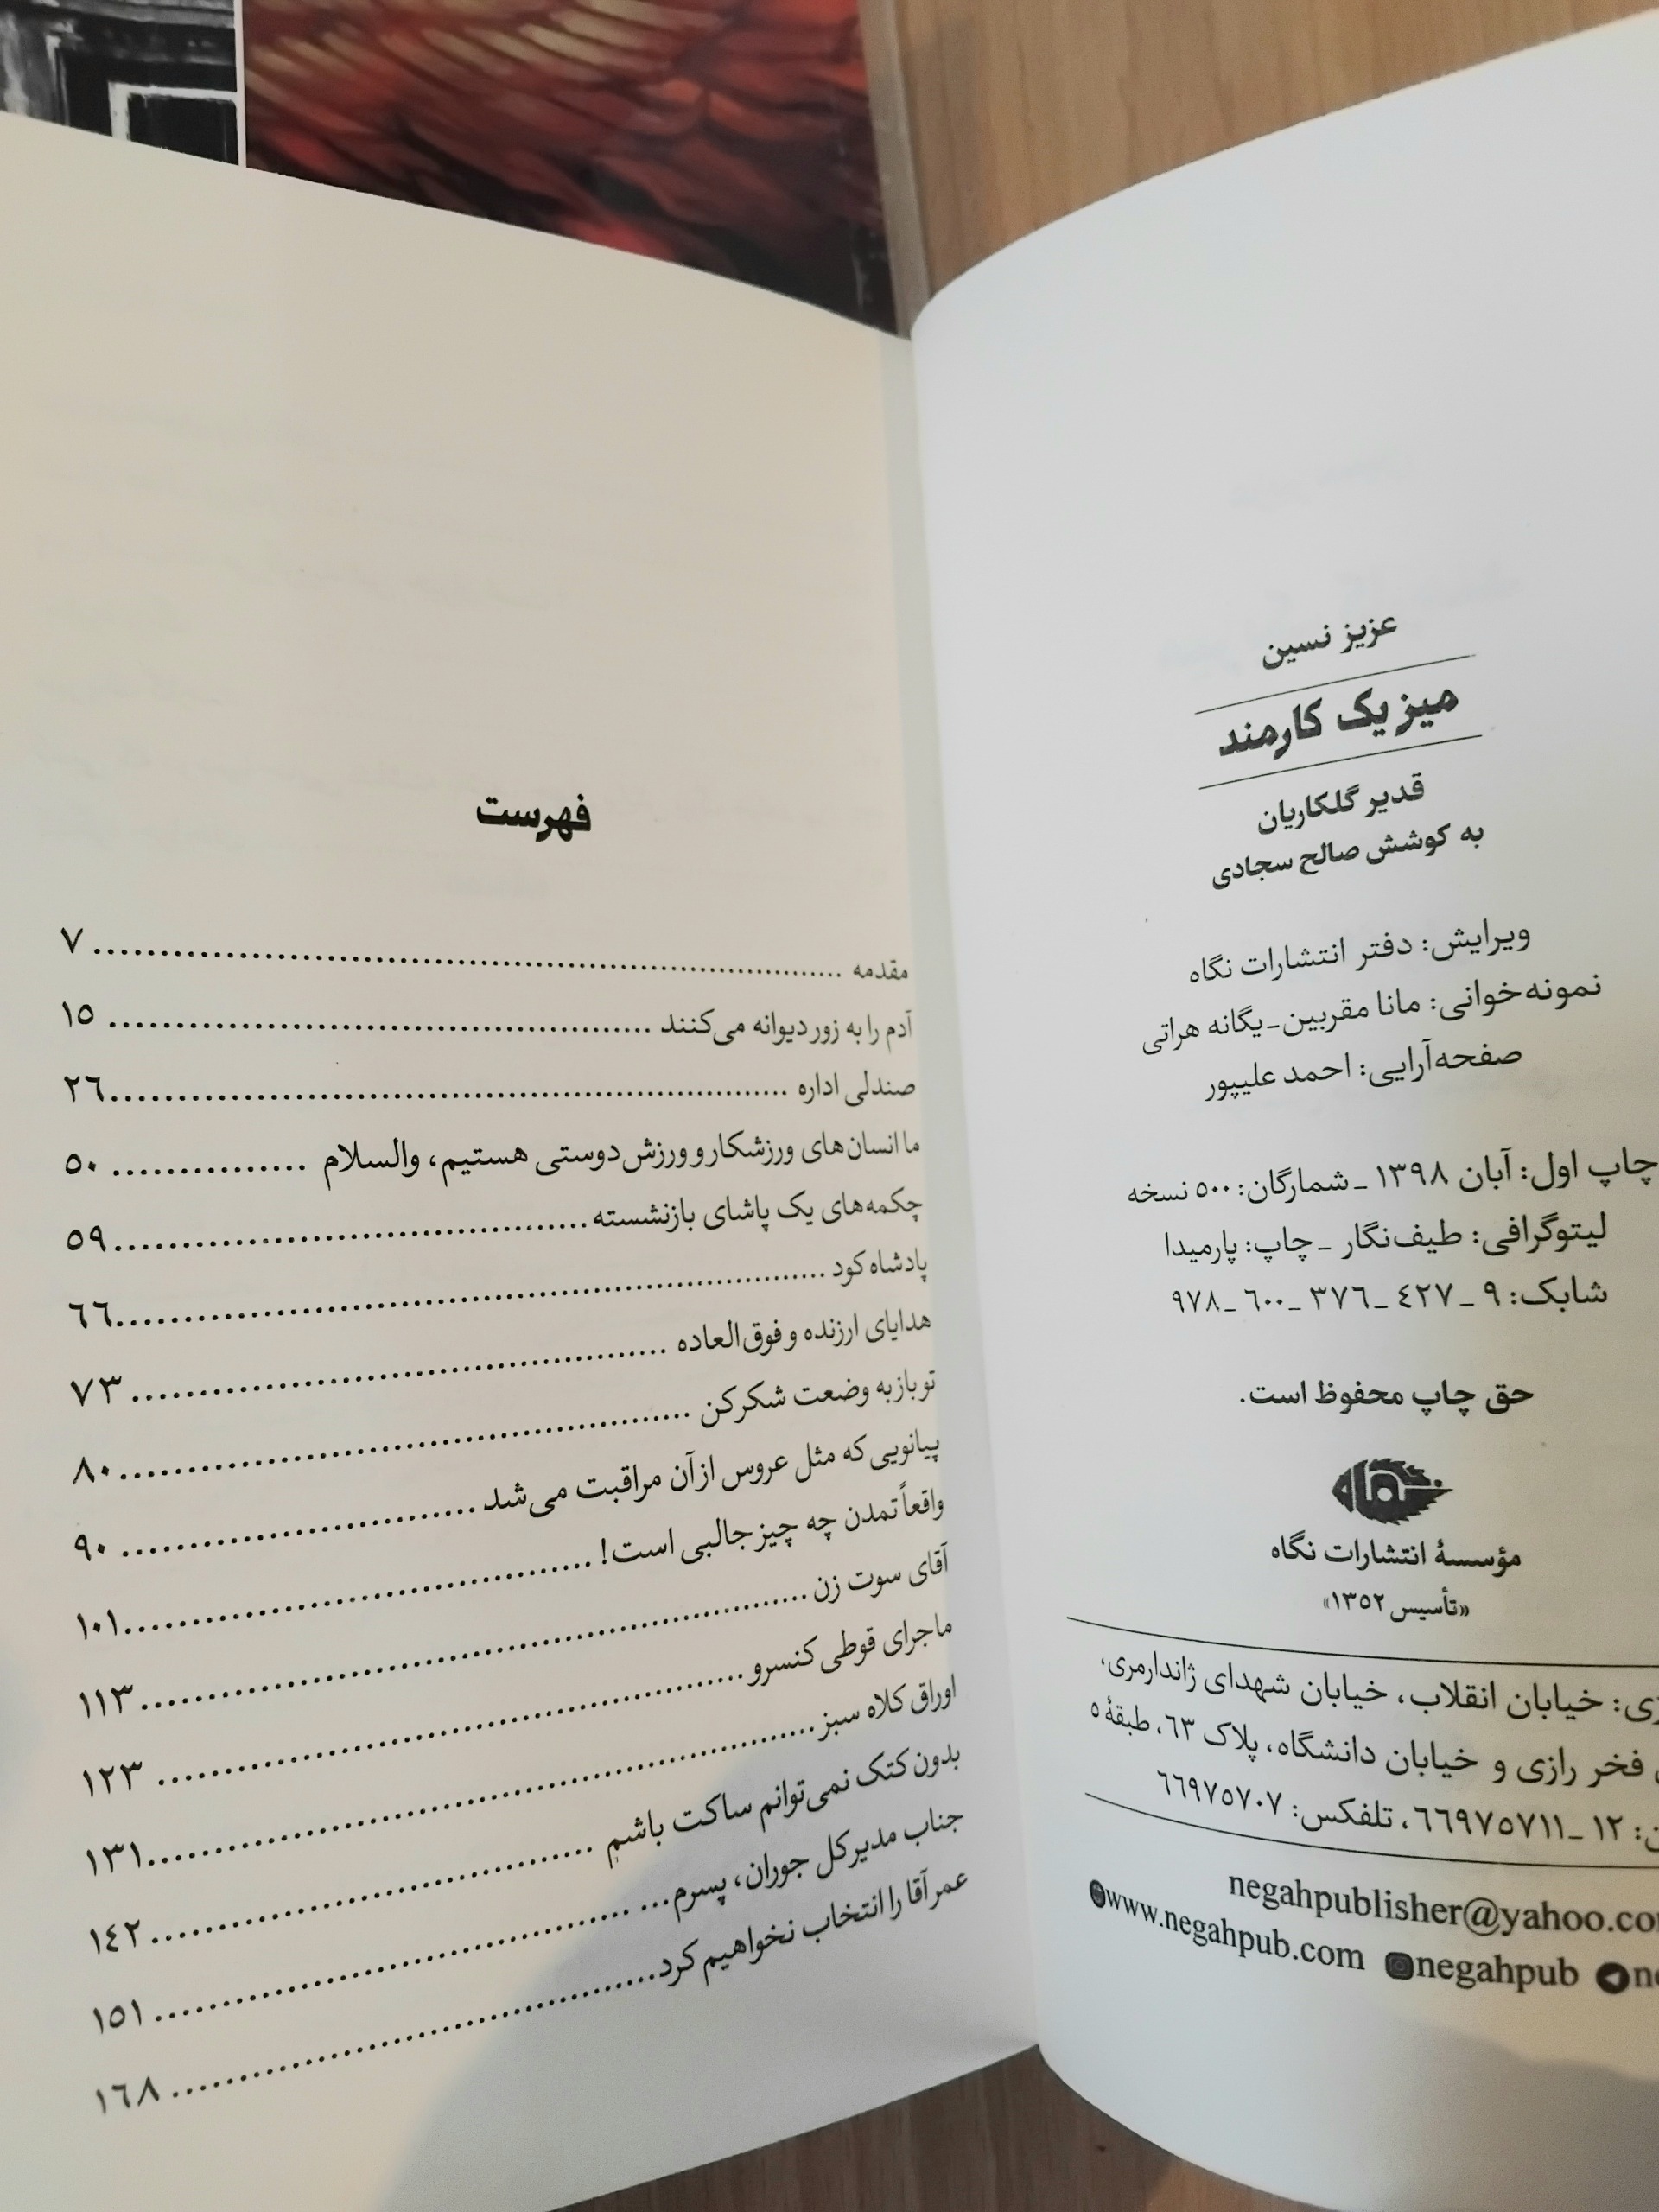 عزیز نسین
میز یک کارمند
قدیر گلکاریان
به کوشش صالح سجادی
ویرایش: دفتر انتشارات نگاه
نمونه‌خوانی: مانا مقربین-یگانه هراتی
صفحه‌آرایی: احمد علیپور
چاپ اول: آبان ۱۳۹۸ - شمارگان: ۵۰۰ نسخه
لیتوگرافی: طیف‌نگار - چاپ: پارمیدا
شابک: ۹ - ۴۲۷ - ۳۷۶ - ۶۰۰ - ۹۷۸
حق چاپ محفوظ است.
نگاه
مؤسسهٔ انتشارات نگاه
«تأسیس ۱۳۵۲»
خیابان انقلاب، خیابان شهدای ژاندارمری،
فخر رازی و خیابان دانشگاه، پلاک ۶۳، طبقهٔ ۵
۱۲ - ۶۶۹۷۵۷۱۱، تلفکس: ۶۶۹۷۵۷۰۷
negahpublisher@yahoo.co
www.negahpub.com negahpub
فهرست
مقدمه ........ ۷
آدم را به زور دیوانه می‌کنند ........ ۱۵
صندلی اداره ........ ۲۶
ما انسان‌های ورزشکار و ورزش‌دوستی هستیم، والسلام ........ ۵۰
چکمه‌های یک پاشای بازنشسته ........ ۵۹
پادشاه کود ........ ۶۶
هدایای ارزنده و فوق‌العاده ........ ۷۳
تو باز به وضعت شکر کن ........ ۸۰
پیانویی که مثل عروس از آن مراقبت می‌شد ........ ۹۰
واقعاً تمدن چه چیز جالبی است! ........ ۱۰۱
آقای سوت زن ........ ۱۱۳
ماجرای قوطی کنسرو ........ ۱۲۳
اوراق کلاه سبز ........ ۱۳۱
بدون کتک نمی‌توانم ساکت باشم ........ ۱۴۲
جناب مدیرکل جوران، پسرم... ........ ۱۵۱
عمر آقا را انتخاب نخواهیم کرد ........ ۱۶۸